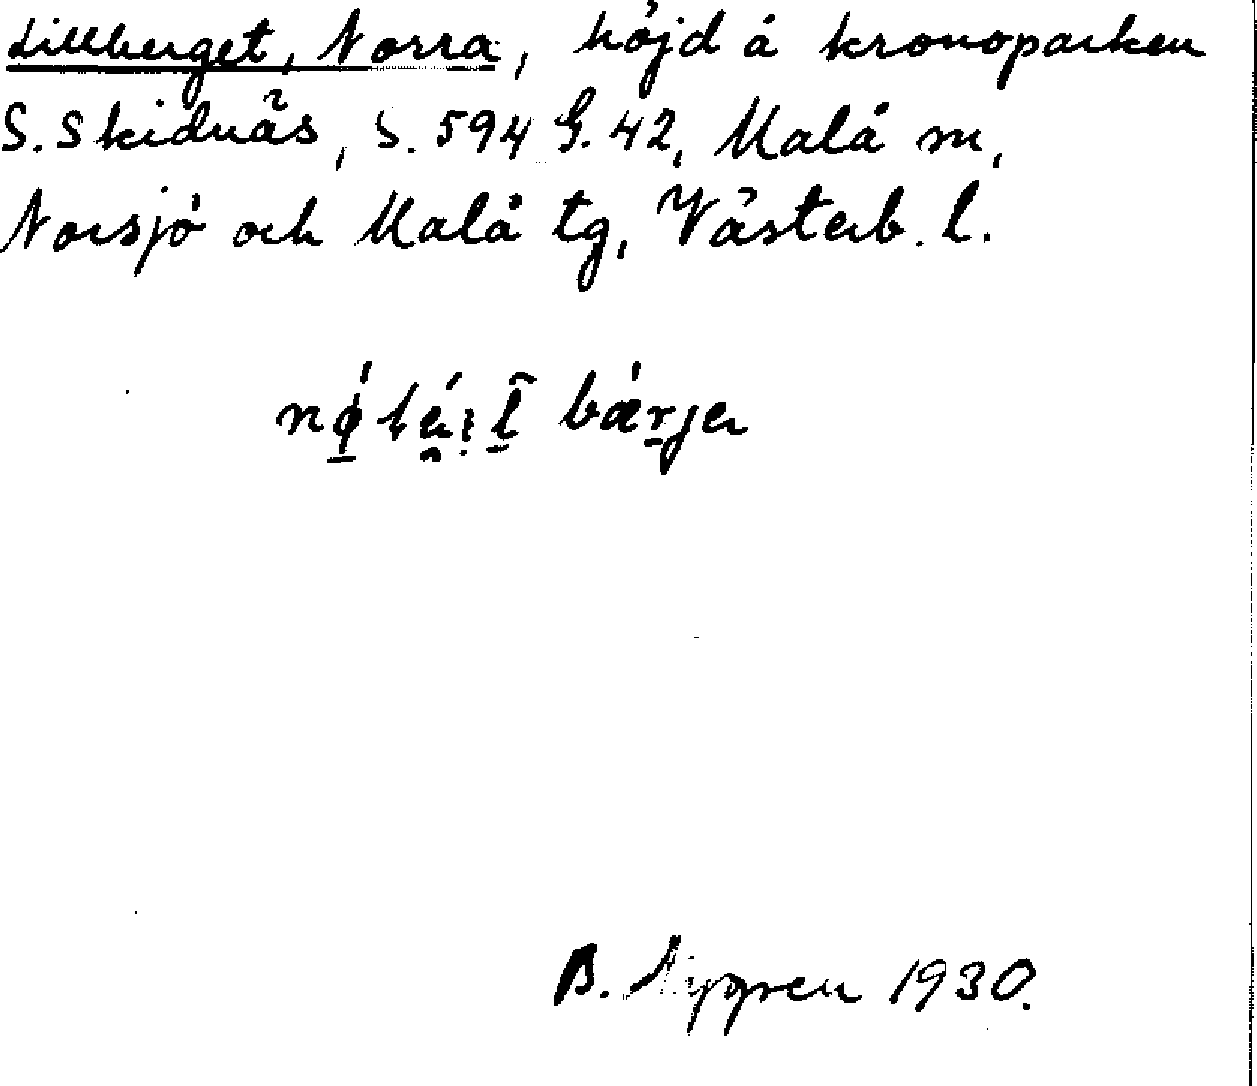 Lillberget, Norra, höjd å kronoparken
S. Skidnäs, S. 594 G. 42, Malå sn,
Norsjö och Malå tg, Västerb. l.
bærje
B. Nygren 1930.